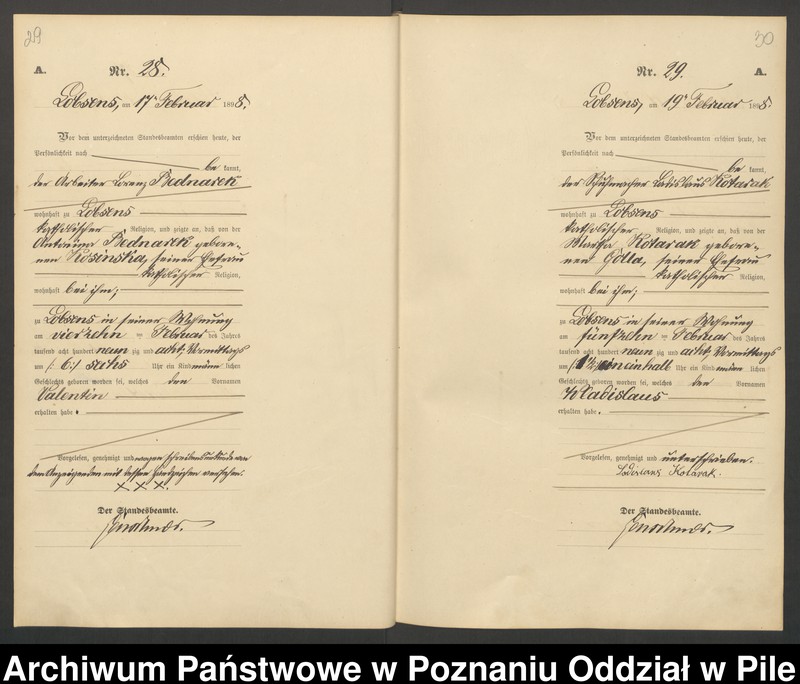 29
A.
Nr. 28.
Lobsens, am 17t Februar 1898.
Vor dem unterzeichneten Standesbeamten erschien heute, der
Persönlichkeit nach
be kannt,
der Arbeiter Lorenz Bednarek
wohnhaft zu Lobsens
katholischer Religion, und zeigte an, daß von der
Antonina Bednarek gebore-
nen Kosinska, seiner Ehefrau
katholischer Religion,
wohnhaft bei ihm;
zu Lobsens in seiner Wohnung
am vierzehn ten Februar des Jahres
tausend acht hundert neun zig und acht, Vormittags
um /: 6:/ sechs Uhr ein Kind männ lichen
Geschlechts geboren worden sei, welches den Vornamen
Valentin
erhalten habe.
Vorgelesen, genehmigt und wegen Schreibensunkunde von
dem Anzeigenden mit dessen Handzeichen versehen.
XXX.
Der Standesbeamte.
30
Nr. 29.
A.
Lobsens, am 19t Februar 1898.
Vor dem unterzeichneten Standesbeamten erschien heute, der
Persönlichkeit nach
be kannt,
der Schuhmacher Ladislaus Kotarak
wohnhaft zu Lobsens
katholischer Religion, und zeigte an, daß von der
Martha Kotarak gebore-
nen Golla, seiner Ehefrau
katholischer Religion,
wohnhaft bei ihm;
zu Lobsens in seiner Wohnung
am fünfzehn ten Februar des Jahres
tausend acht hundert neun zig und acht, Vormittags
um eineinhalb Uhr ein Kind männ lichen
Geschlechts geboren worden sei, welches den Vornamen
Wladislaus
erhalten habe.
Vorgelesen, genehmigt und unterschrieben.
Kotarak.
Der Standesbeamte.
Archiwum Państwowe w Poznaniu Oddział w Pile